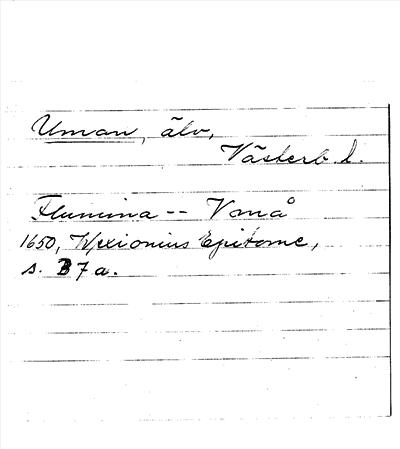 Uman, älv,
Västerb. l.
Flumina -- Vmå
1650, Wexionius Epitome,
s. B 7 a.